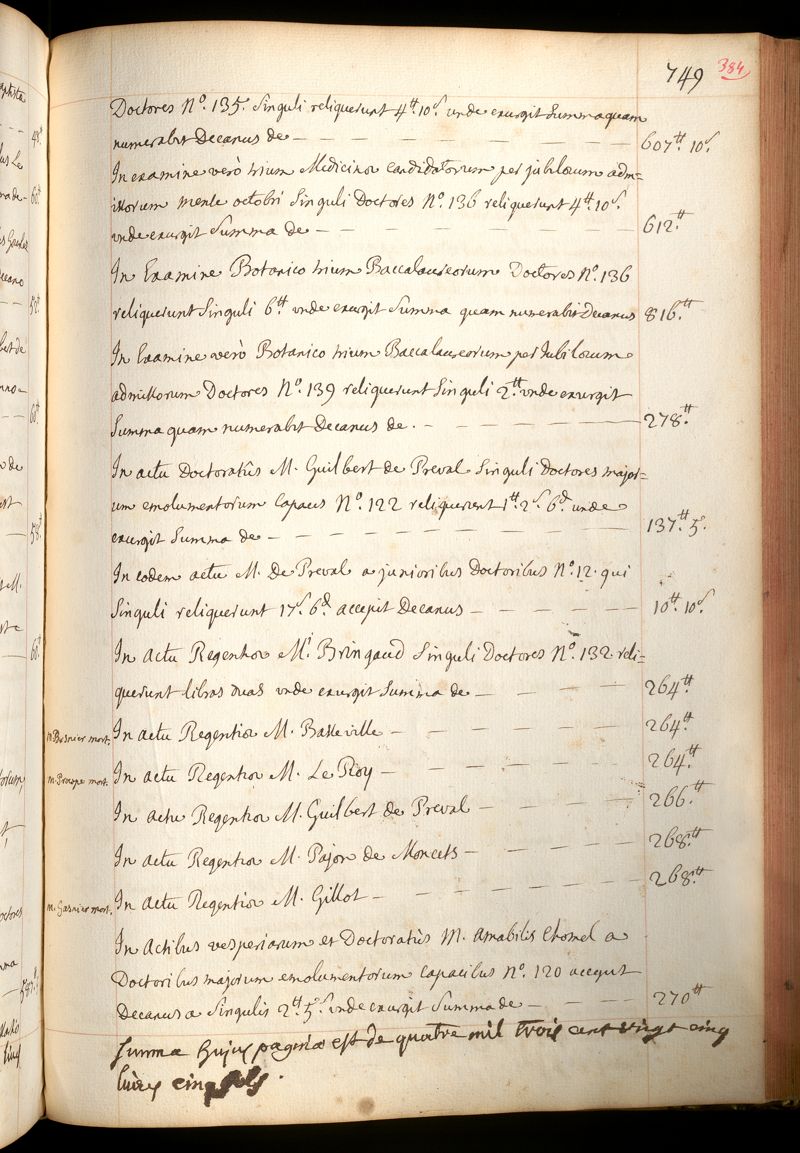 749
384
Doctores N.º 135. Singuli reliquerunt 4.tt 10.s unde exurgit Summa quam
numerabit Decanus de — 607.tt 10.s
In examine verò trium Medicinæ candidatorum per jubilæum adm=
issorum mense octobri Singuli Doctores N.º 136 reliquerunt 4.tt 10.s
unde exurgit Summa de — 612.tt
In Examine Botanico trium Baccalaureorum Doctores N.º 136
reliquerunt Singuli 6.tt unde exurgit Summa quam numerabit Decanus 816.tt
In Examine verò Botanico trium Baccalaureorum per Jubilæum
admissorum Doctores N.º 139 reliquerunt Singuli 2.tt unde exurgit
Summa quam numerabit Decanus de — 278.tt
In actu Doctoratûs M. Guilbert de Preval Singuli Doctores major=
um emolumentorum capaces N.º 122 reliquerunt 1.tt 2.s 6.d unde
exurgit Summa de — 137.tt 5.s
In eodem actu M. De Preval a junioribus Doctoribus N.º 12. qui
Singuli reliquerunt 17.s 6.d accepit Decanus — 10.tt 10.s
In actu Regentiæ M.i Bringaud Singuli Doctores N.º 132. reli=
querunt libras duas unde exurgit Summa de — 264.tt
m. Bosnier mort. In actu Regentiæ M. Basseville — 264.tt
m. Procope mort. In actu Regentiæ M. Le Roy — 264.tt
In actu Regentiæ M. Guilbert de Preval — 266.tt
In actu Regentiæ M. Pajon de Moncets — 268.tt
m. Gasnier mort. In actu Regentiæ M. Gillot — 268.tt
In Actibus vesperiarum et Doctoratûs M. Amabilis Chomel a
Doctoribus majorum emolumentorum capacibus N.º 120 accepit
Decanus a Singulis 2.tt 5.s unde exurgit Summa de — 270.tt
Summa hujus paginæ est de quatre mil trois cent vingt cinq
livres cinq sols.